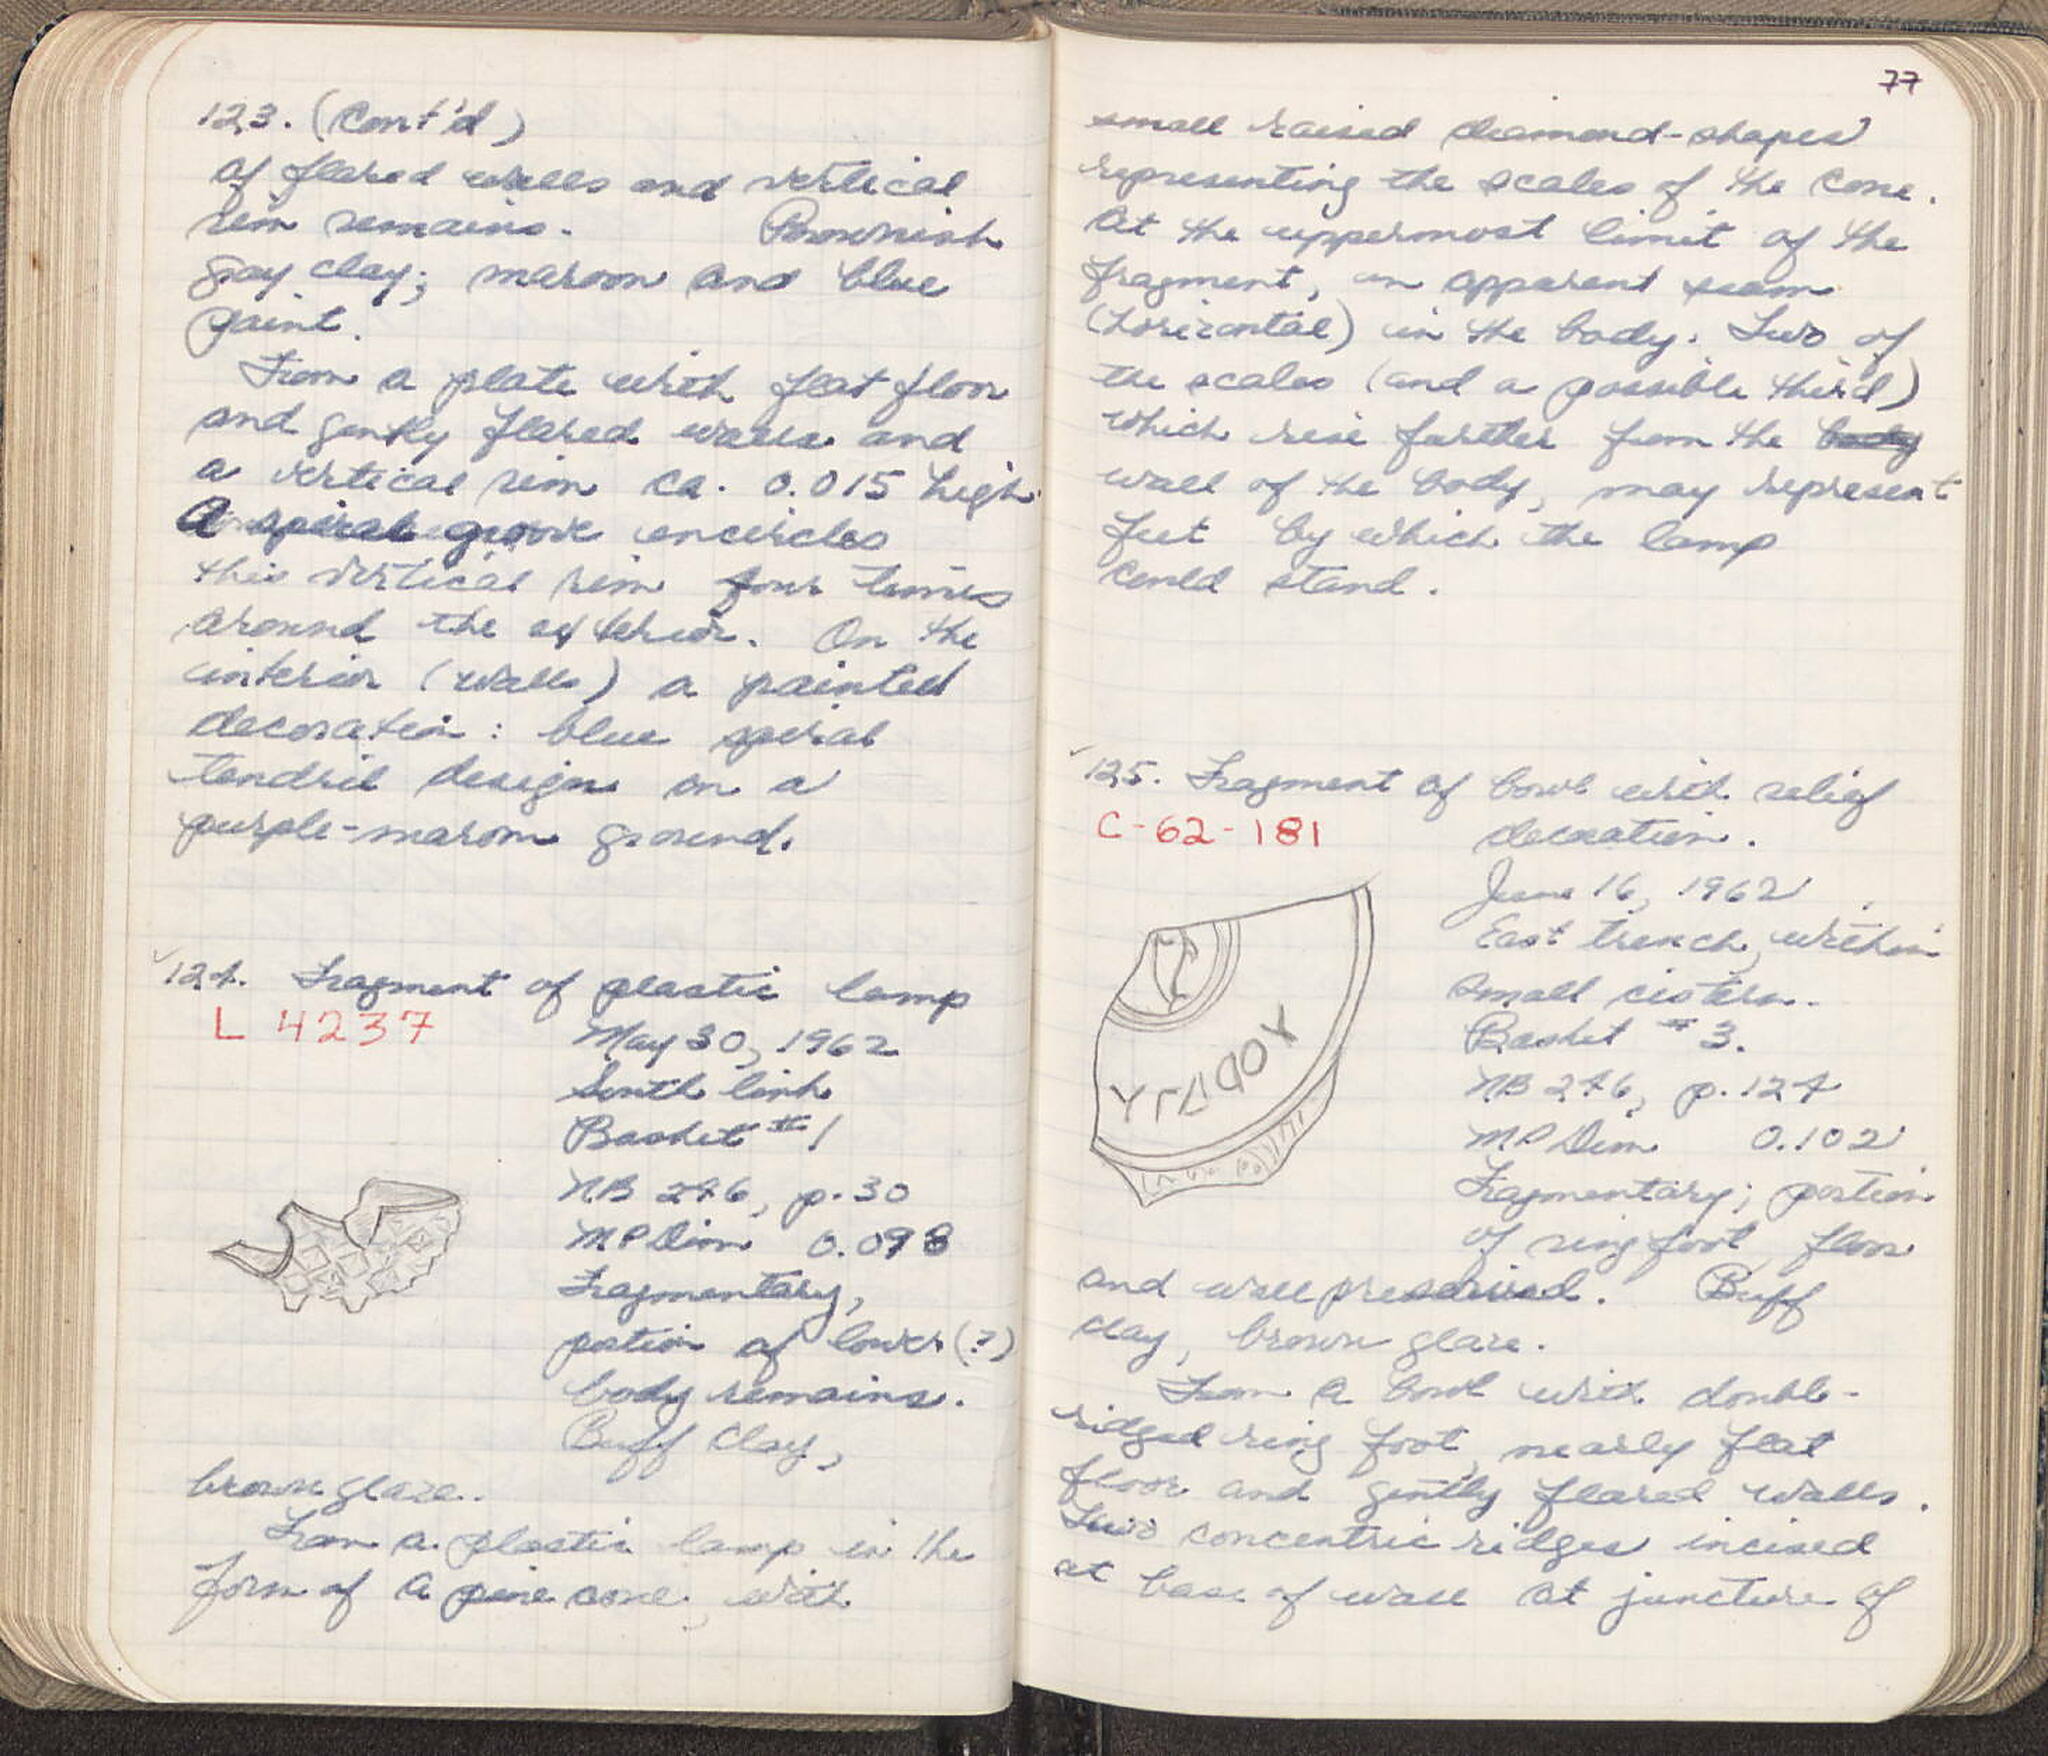 123. (Cont'd)
of flared walls and vertical
rim remains. Brownish
gray clay; maroon and blue
paint.
From a plate with flat floor
and gently flared walls and
a vertical rim ca. 0.015 high.
A spiral groove encircles
this vertical rim four times
around the exterior. On the
interior (walls) a painted
decoration: blue spiral
tendril design on a
purple-maroon ground.
124. Fragment of plastic lamp
L 4237
May 30, 1962
South
Basket #1
NB 246, p. 30
MP Dim 0.098
Fragmentary,
portion of lower (?)
body remains.
Buff clay,
brown glaze.
From a plastic lamp in the
form of a pine cone, with
77
small raised diamond-shapes
representing the scales of the cone.
At the uppermost limit of the
fragment, an apparent seam
(horizontal) in the body. Two of
the scales (and a possible third)
which rise further from the body
wall of the body, may represent
feet by which the lamp
could stand.
125. Fragment of bowl with relief
C-62-181
decoration.
June 16, 1962
East trench, within
small cistern.
Basket #3.
NB 246, p. 124
MP Dim 0.102
Fragmentary; portion
of ring foot, floor
and wall preserved. Buff
clay, brown glaze.
From a bowl with double-
ridged ring foot, nearly flat
floor and gently flared walls.
Two concentric ridges incised
at base of wall at juncture of